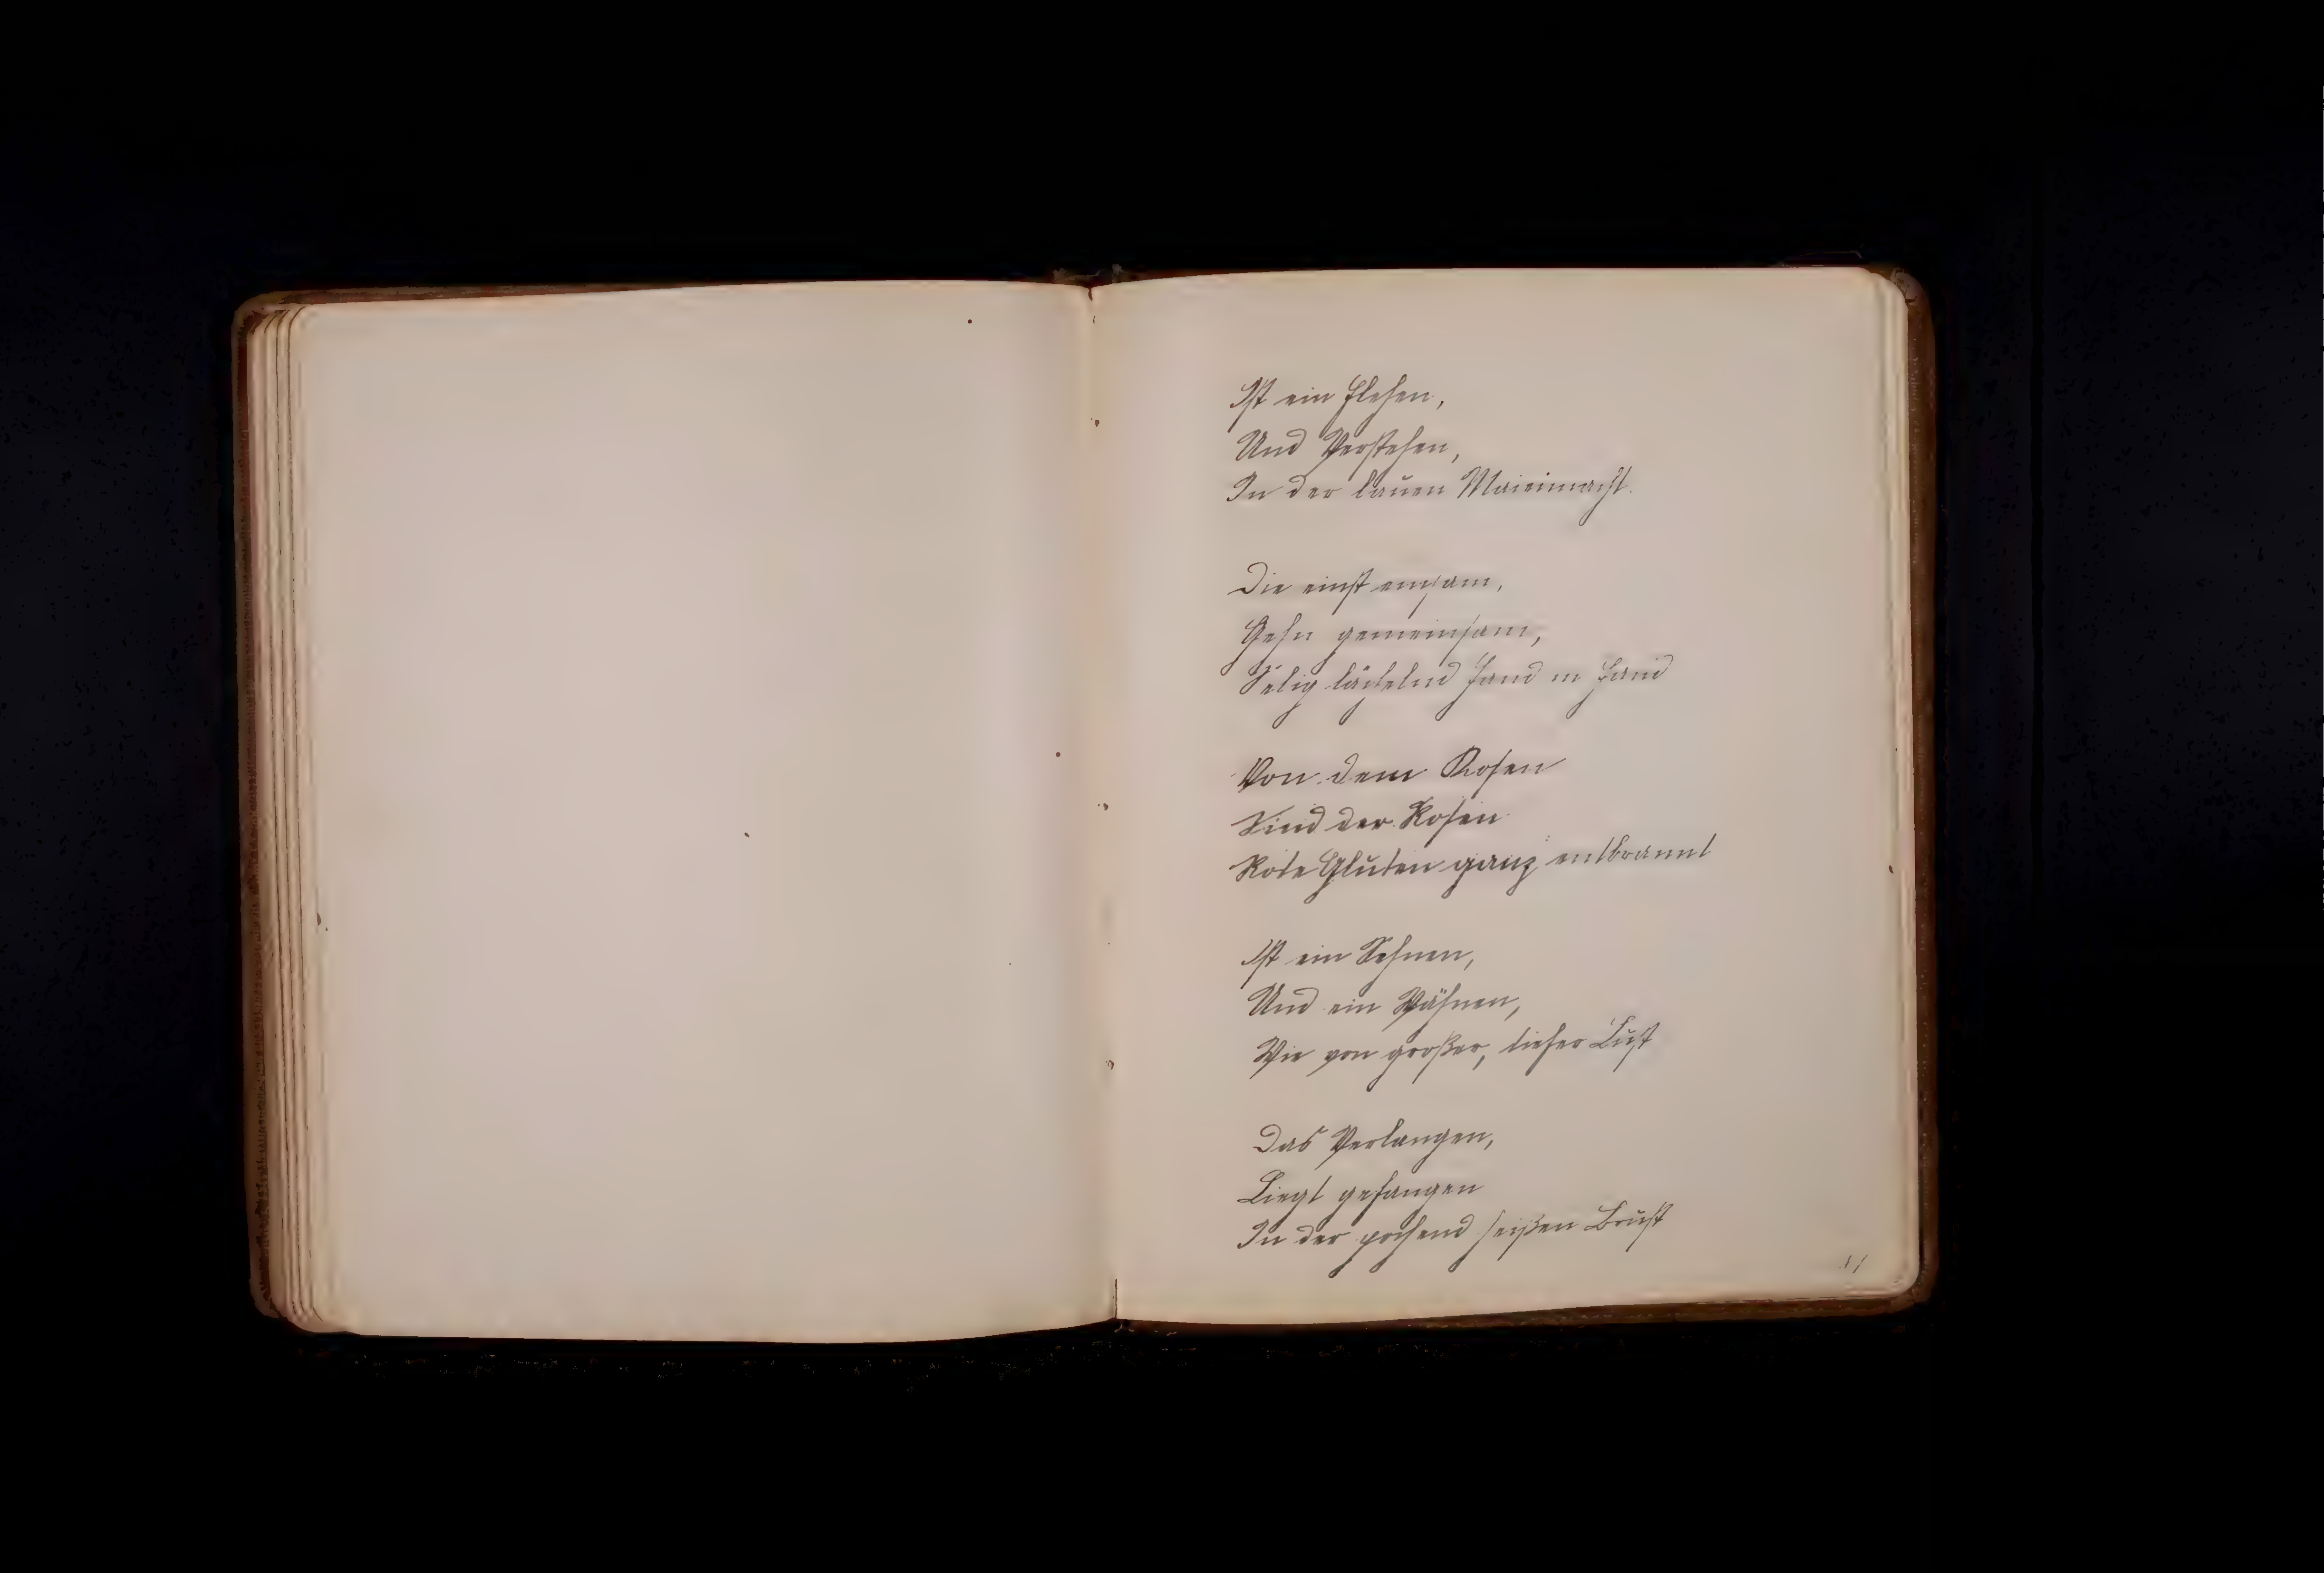 Ist ein Flehen,
Und Verstehen,
In der lauen Maiennacht.
Die einst einsam,
Gehn gemeinsam,
Selig lächelnd Hand in Hand
Von dem Kosen
Sind der Rosen
Rote Gluten ganz entbrannt
Ist ein Sehnen,
Und ein Wähnen,
Wie von großer, tiefer Lust
Das Verlangen,
Liegt gefangen
In der pochend heißen Brust